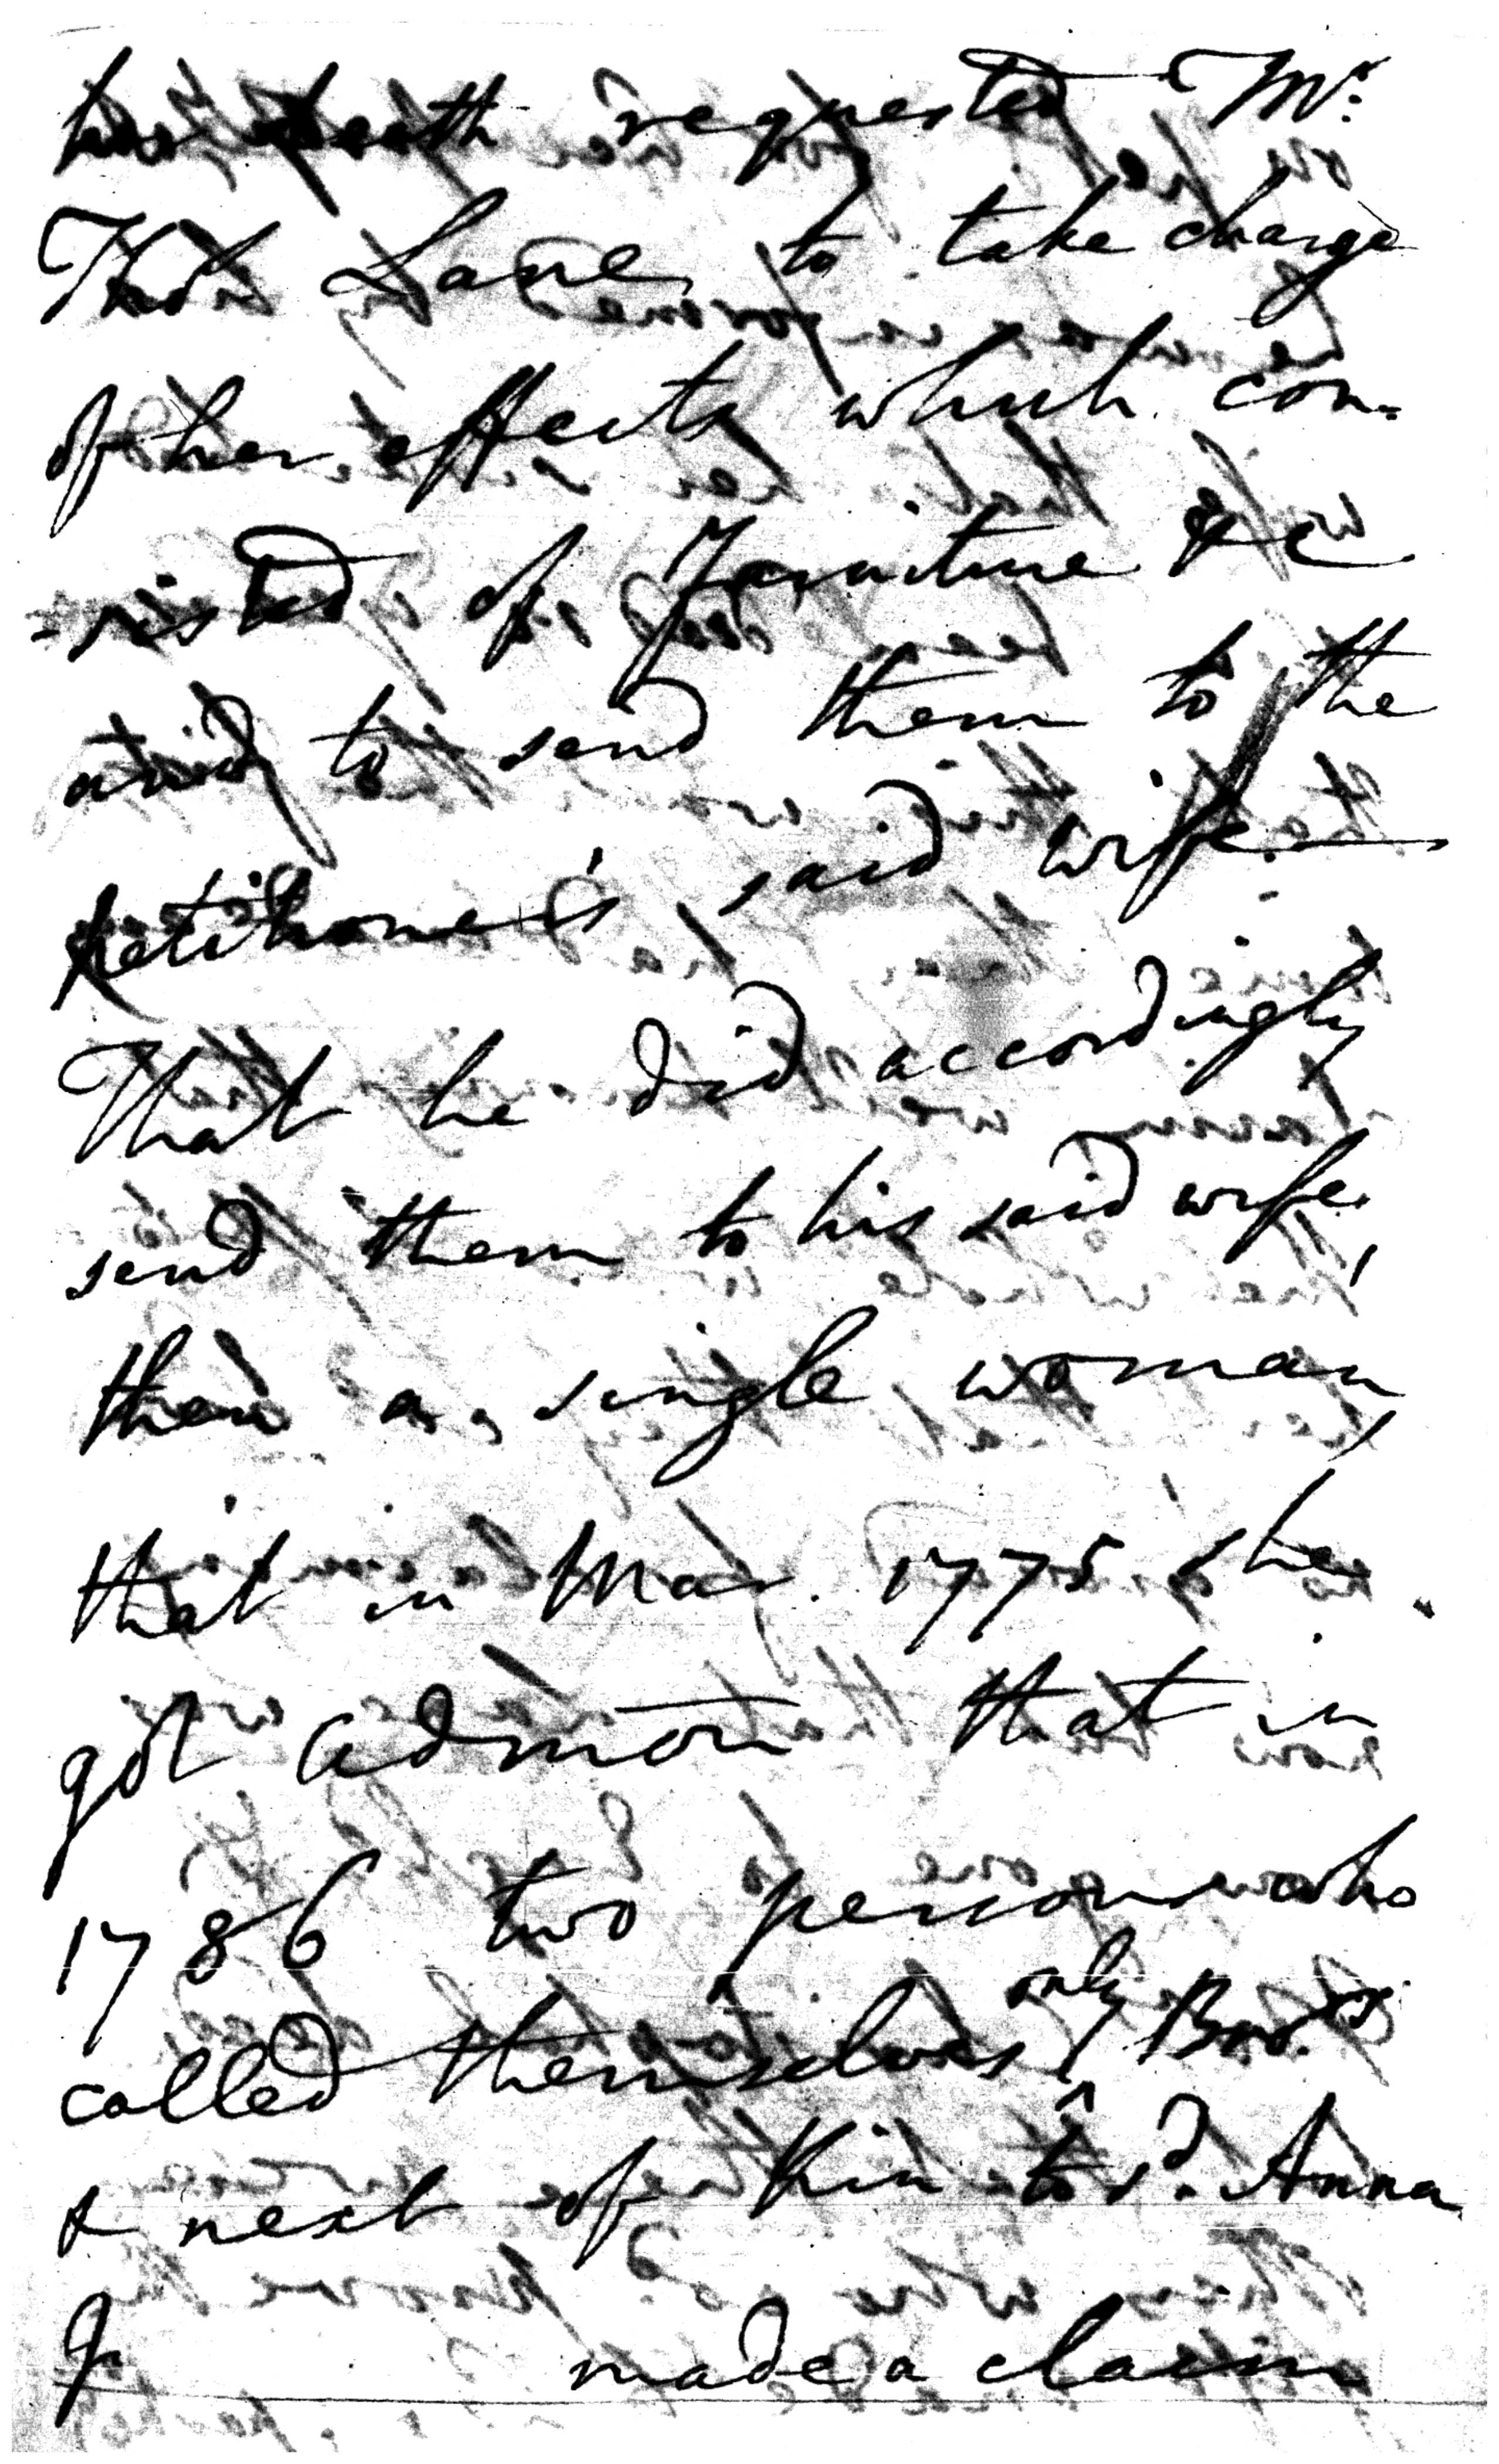 her death requested Mr.
Thos Lane, to take charge
of her effects which con=
=sisted of Furniture &c
and to send them to the
petitioner's said wife
That he did accordingly
send them to his said wife,
then a single woman,
that in Mar. 1775 she
got admon that in
1786 two persons who
called themselves only Bros.
& next of Kin to sd. Anna
G made a claim